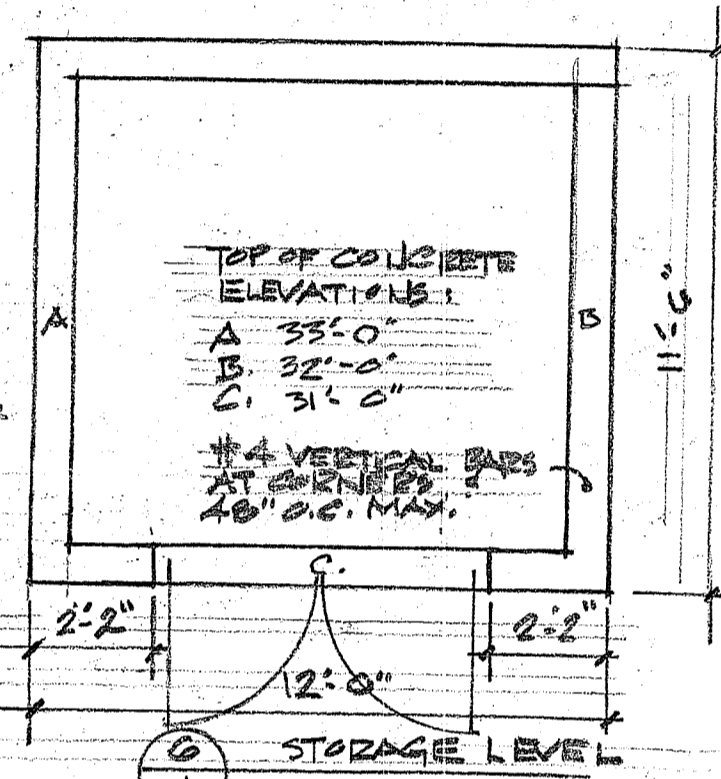 TOP OF CONCRETE
ELEVATIONS:
A
B
A 33'-0"
B. 32'-0"
C. 31'-0"
11'-6"
#4 VERTICAL BARS
AT CORNERS &
48" O.C. MAX.
C.
2'-2"
2'-2"
12'-0"
6
STORAGE LEVEL